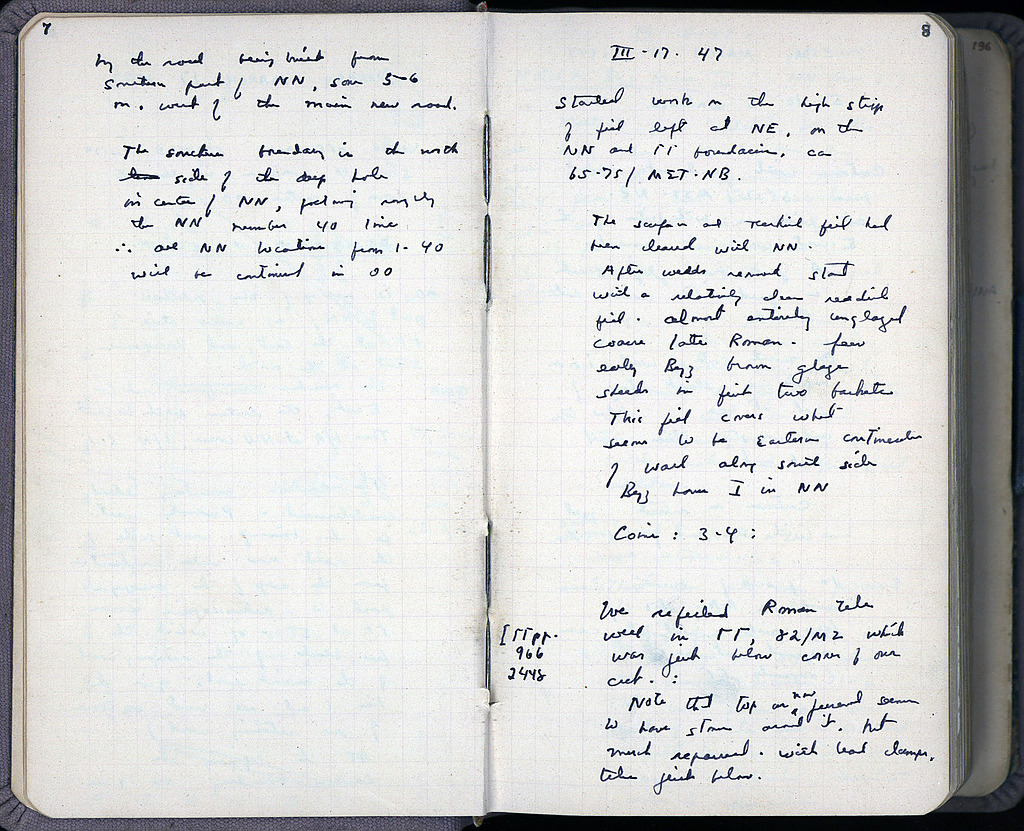 7
by the road being built from
southern part of NN, some 5-6
m. west of the main new road.
The southern boundary is the north
side of the deep hole
in center of NN, joining roughly
the NN number 40 line
∴ all NN locations from 1-40
will be continued in OO
8
III-17-47
Started work on the high strip
of fill left at NE, on the
NN and ΓΓ boundaries, ca
65-75/ ΜΣΤ-ΝΒ.
The surface and Turkish fill had
been cleared with NN.
After weeds removed start
with a relatively clean reddish
fill. almost entirely unglazed
coarse late Roman. few
early Byz brown glaze
sherds in first two baskets
This fill covers what
seems to be Eastern continuation
of wall along south side
Byz house I in NN
Coins: 3-4:
We refilled Roman tile
well in ΓΓ, 82/ΜΖ which
was just below corner of our
cut. :
[ΓΓ pp.
966
2448
Note that top as now preserved seems
to have stone around it, but
much repaired. with lead clamps,
tiles just below.